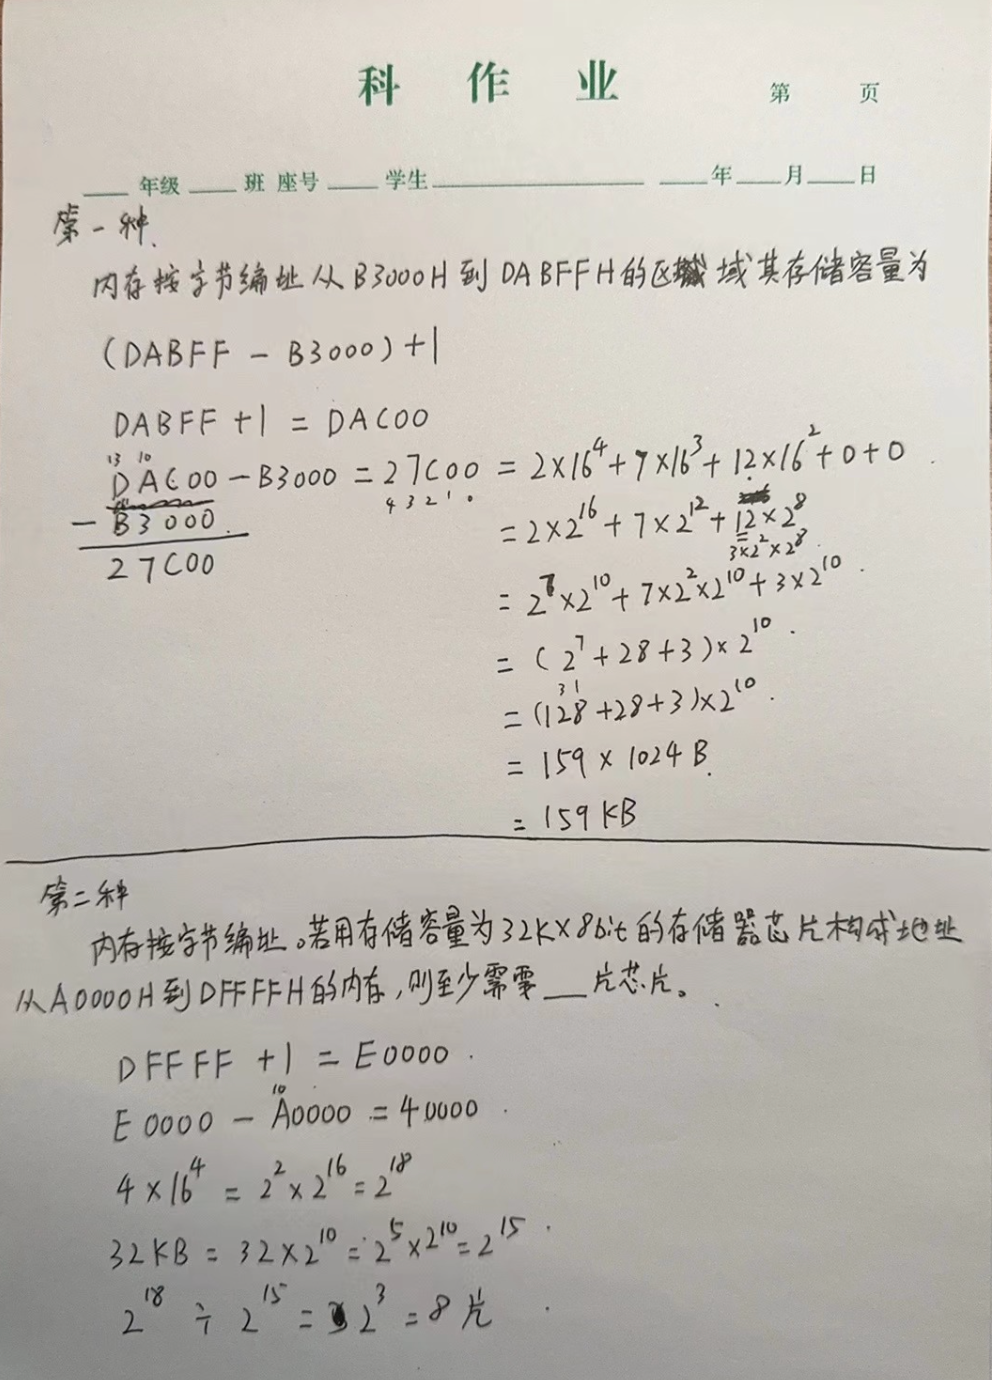 科 作 业
第 页
年级 班 座号 学生 年 月 日
第一种、
内存按字节编址从B3000H到DABFFH的区域其存储容量为
(DABFF - B3000)+1
DABFF +1 = DAC00
13 10
DAC00 - B3000 = 27C00 = 2×16⁴+7×16³+12×16²+0+0
4 3 2 1 0
- B3000
27C00
= 2×2¹⁶+7×2¹²+12×2⁸
3×2²×2⁸
= 2⁷×2¹⁰+7×2²×2¹⁰+3×2¹⁰
= (2⁷+28+3)×2¹⁰
31
= (128+28+3)×2¹⁰
= 159 × 1024 B
= 159 KB
第二种
内存按字节编址。若用存储容量为32K×8bit的存储器芯片构成地址
从A0000H到DFFFFH的内存,则至少需要___片芯片。
DFFFF +1 = E0000
10
E0000 - A0000 = 40000
4×16⁴ = 2²×2¹⁶=2¹⁸
32KB = 32×2¹⁰=2⁵×2¹⁰=2¹⁵
2¹⁸ ÷ 2¹⁵ = 2³ = 8片